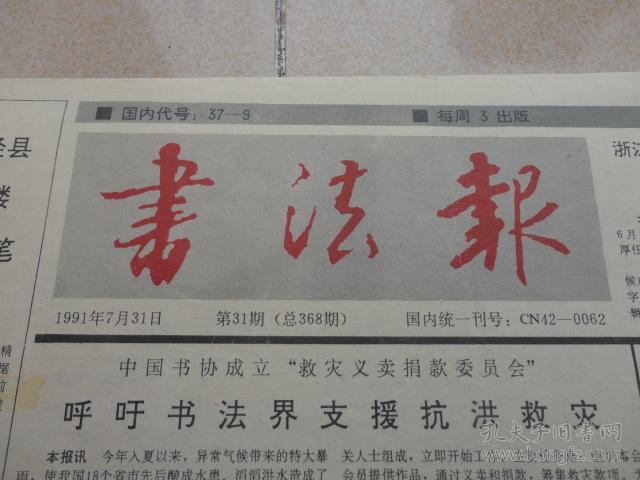 ■ 国内代号：37—9　■ 每周 3 出版
書法報
1991年7月31日　第31期（总368期）　国内统一刊号：CN42—0062
中国书协成立“救灾义卖捐款委员会”
呼吁书法界支援抗洪救灾
本报讯　今年入夏以来，异常气候带来的特大暴
雨，使我国18个省市先后酿成水患。滔滔洪水造成了
关人士组成，立即开始工
会员提供作品，通过义卖和捐款，筹集救灾款项。
县
笔
浙江
6月
厚任
候
字
辑
精
据
孔夫子旧书网
kongfz.com